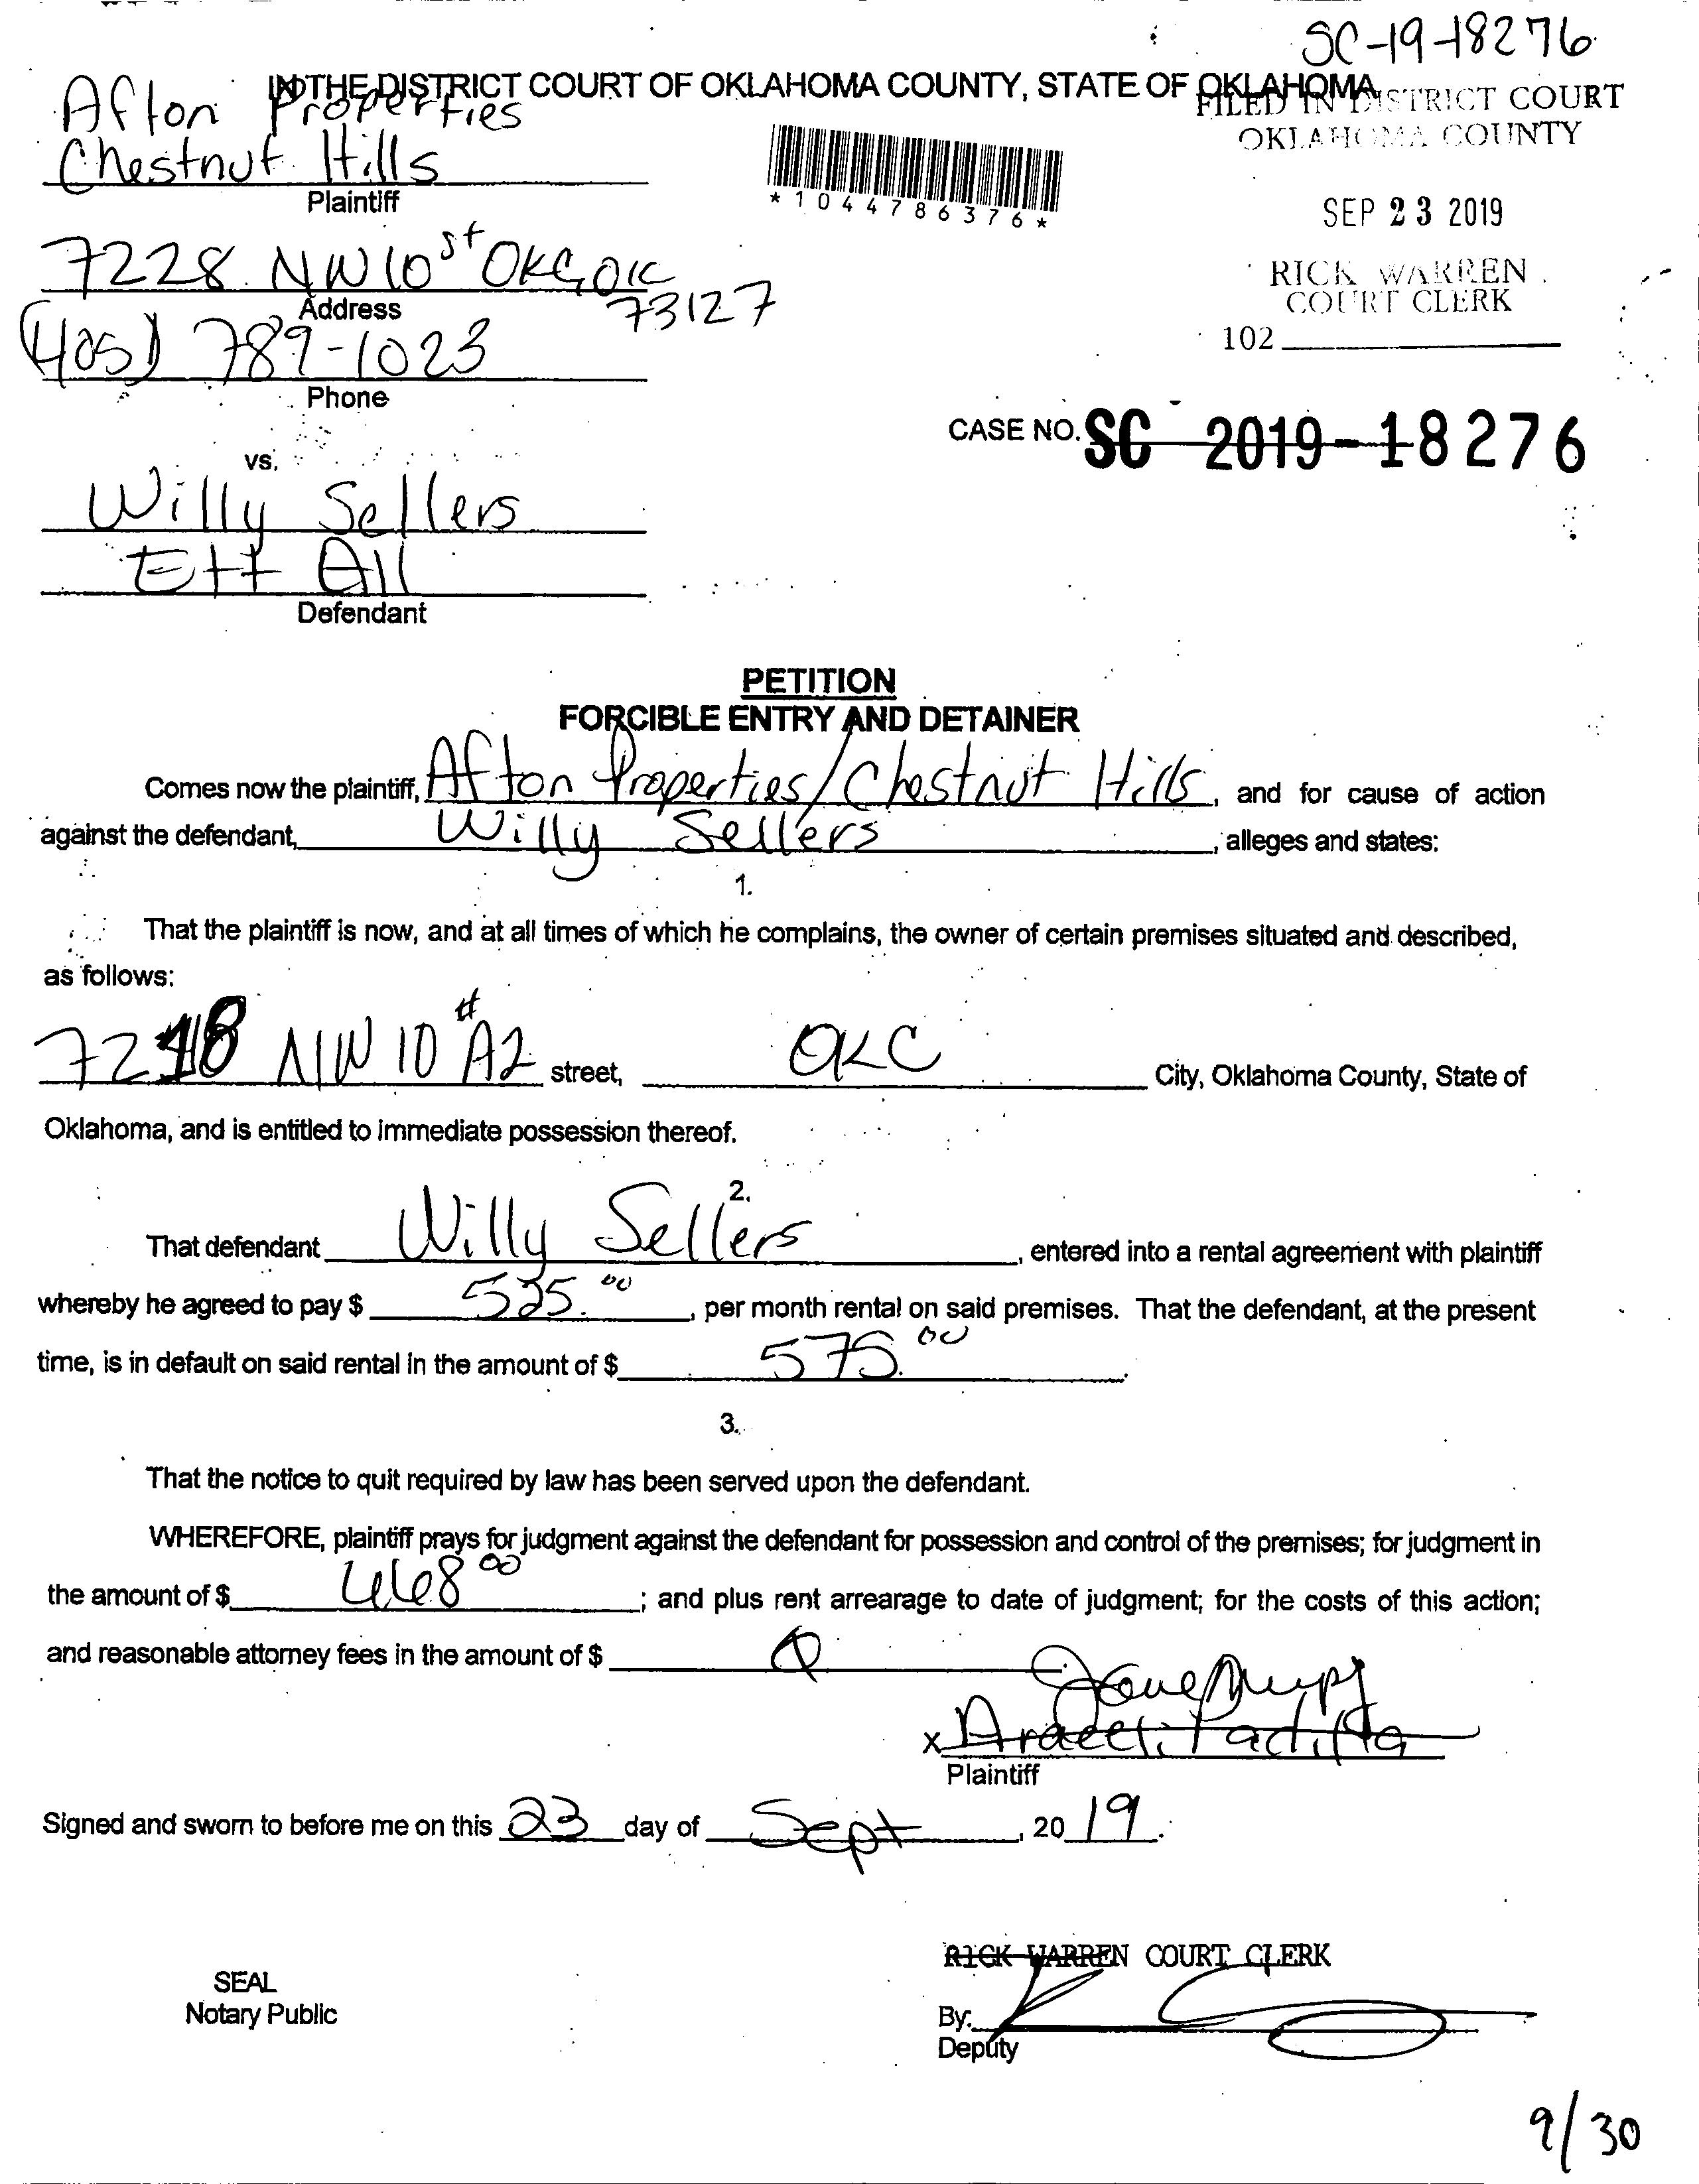 SC-19-18276
IN THE DISTRICT COURT OF OKLAHOMA COUNTY, STATE OF OKLAHOMA
FILED IN DISTRICT COURT
OKLAHOMA COUNTY
Afton Properties
Chestnut Hills
Plaintiff
*1044786376*
SEP 23 2019
RICK WARREN
COURT CLERK
102
7228 NW 10st OKC, OK
73127
Address
(405) 789-1023
Phone
CASE NO. SC 2019-18276
vs.
Willy Sellers
Ett All
Defendant
PETITION
FORCIBLE ENTRY AND DETAINER
Comes now the plaintiff, Afton Properties/Chestnut Hills, and for cause of action
against the defendant, Willy Sellers, alleges and states:
1.
That the plaintiff is now, and at all times of which he complains, the owner of certain premises situated and described,
as follows:
7218 NW 10 #A2 street, OKC City, Oklahoma County, State of
Oklahoma, and is entitled to immediate possession thereof.
2.
That defendant Willy Sellers, entered into a rental agreement with plaintiff
whereby he agreed to pay $ 525.00, per month rental on said premises. That the defendant, at the present
time, is in default on said rental in the amount of $ 575.00.
3.
That the notice to quit required by law has been served upon the defendant.
WHEREFORE, plaintiff prays for judgment against the defendant for possession and control of the premises; for judgment in
the amount of $ 00; and plus rent arrearage to date of judgment; for the costs of this action;
and reasonable attorney fees in the amount of $
x Araceli Padilla
Plaintiff
Signed and sworn to before me on this 23 day of Sept, 2019.
RICK WARREN COURT CLERK
SEAL
Notary Public
By:
Deputy
9/30